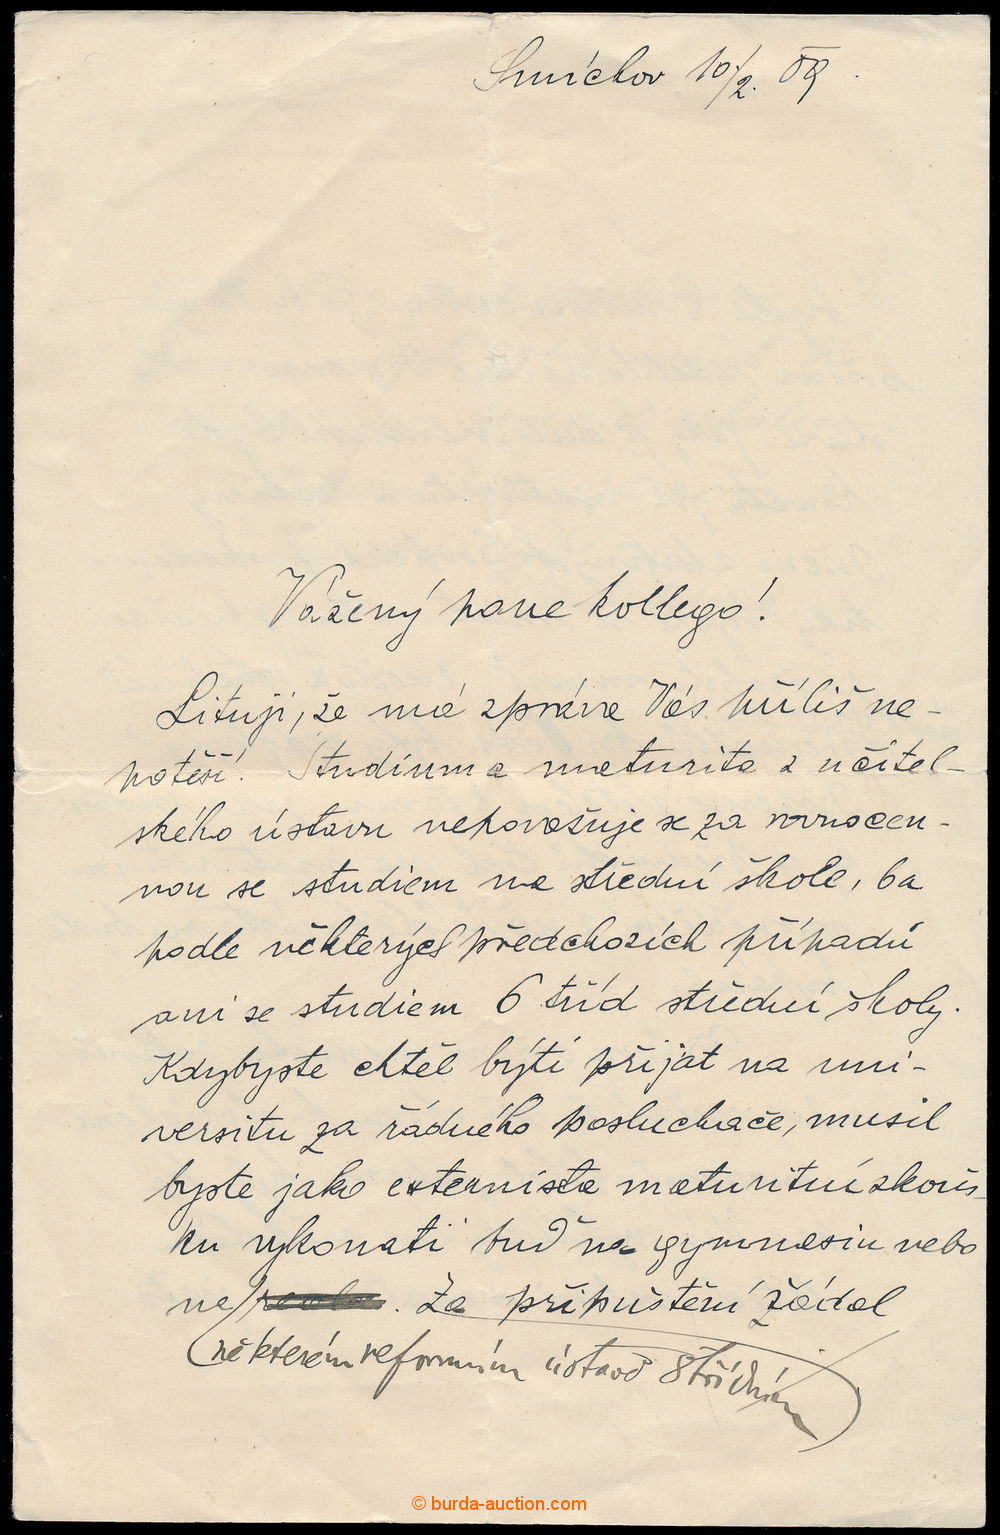 Smíchov 10/2. 09.
Vážený pane kollego!
Lituji, že má zpráva Vás příliš ne-
potěší. Studium a maturita z učitel-
ského ústavu nepovažuje se za rovnocen-
nou se studiem na střední škole, ba
podle některých předchozích případů
ani se studiem 6 tříd střední školy.
Kdybyste chtěl býti přijat na uni-
versitu za řádného posluchače, musil
byste jako externista maturitní zkouš-
ku vykonati buď na gymnasiu nebo
na . Za připuštění žádal
některém reformním ústavě středním
© burda-auction.com